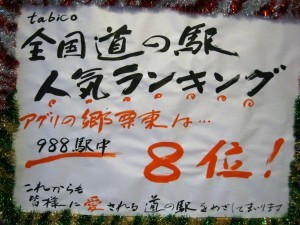 tabico
全国道の駅
人気ランキング
アグリの郷栗東は…
988駅中
8位!
これからも
皆様に愛される道の駅をめざしてまいります